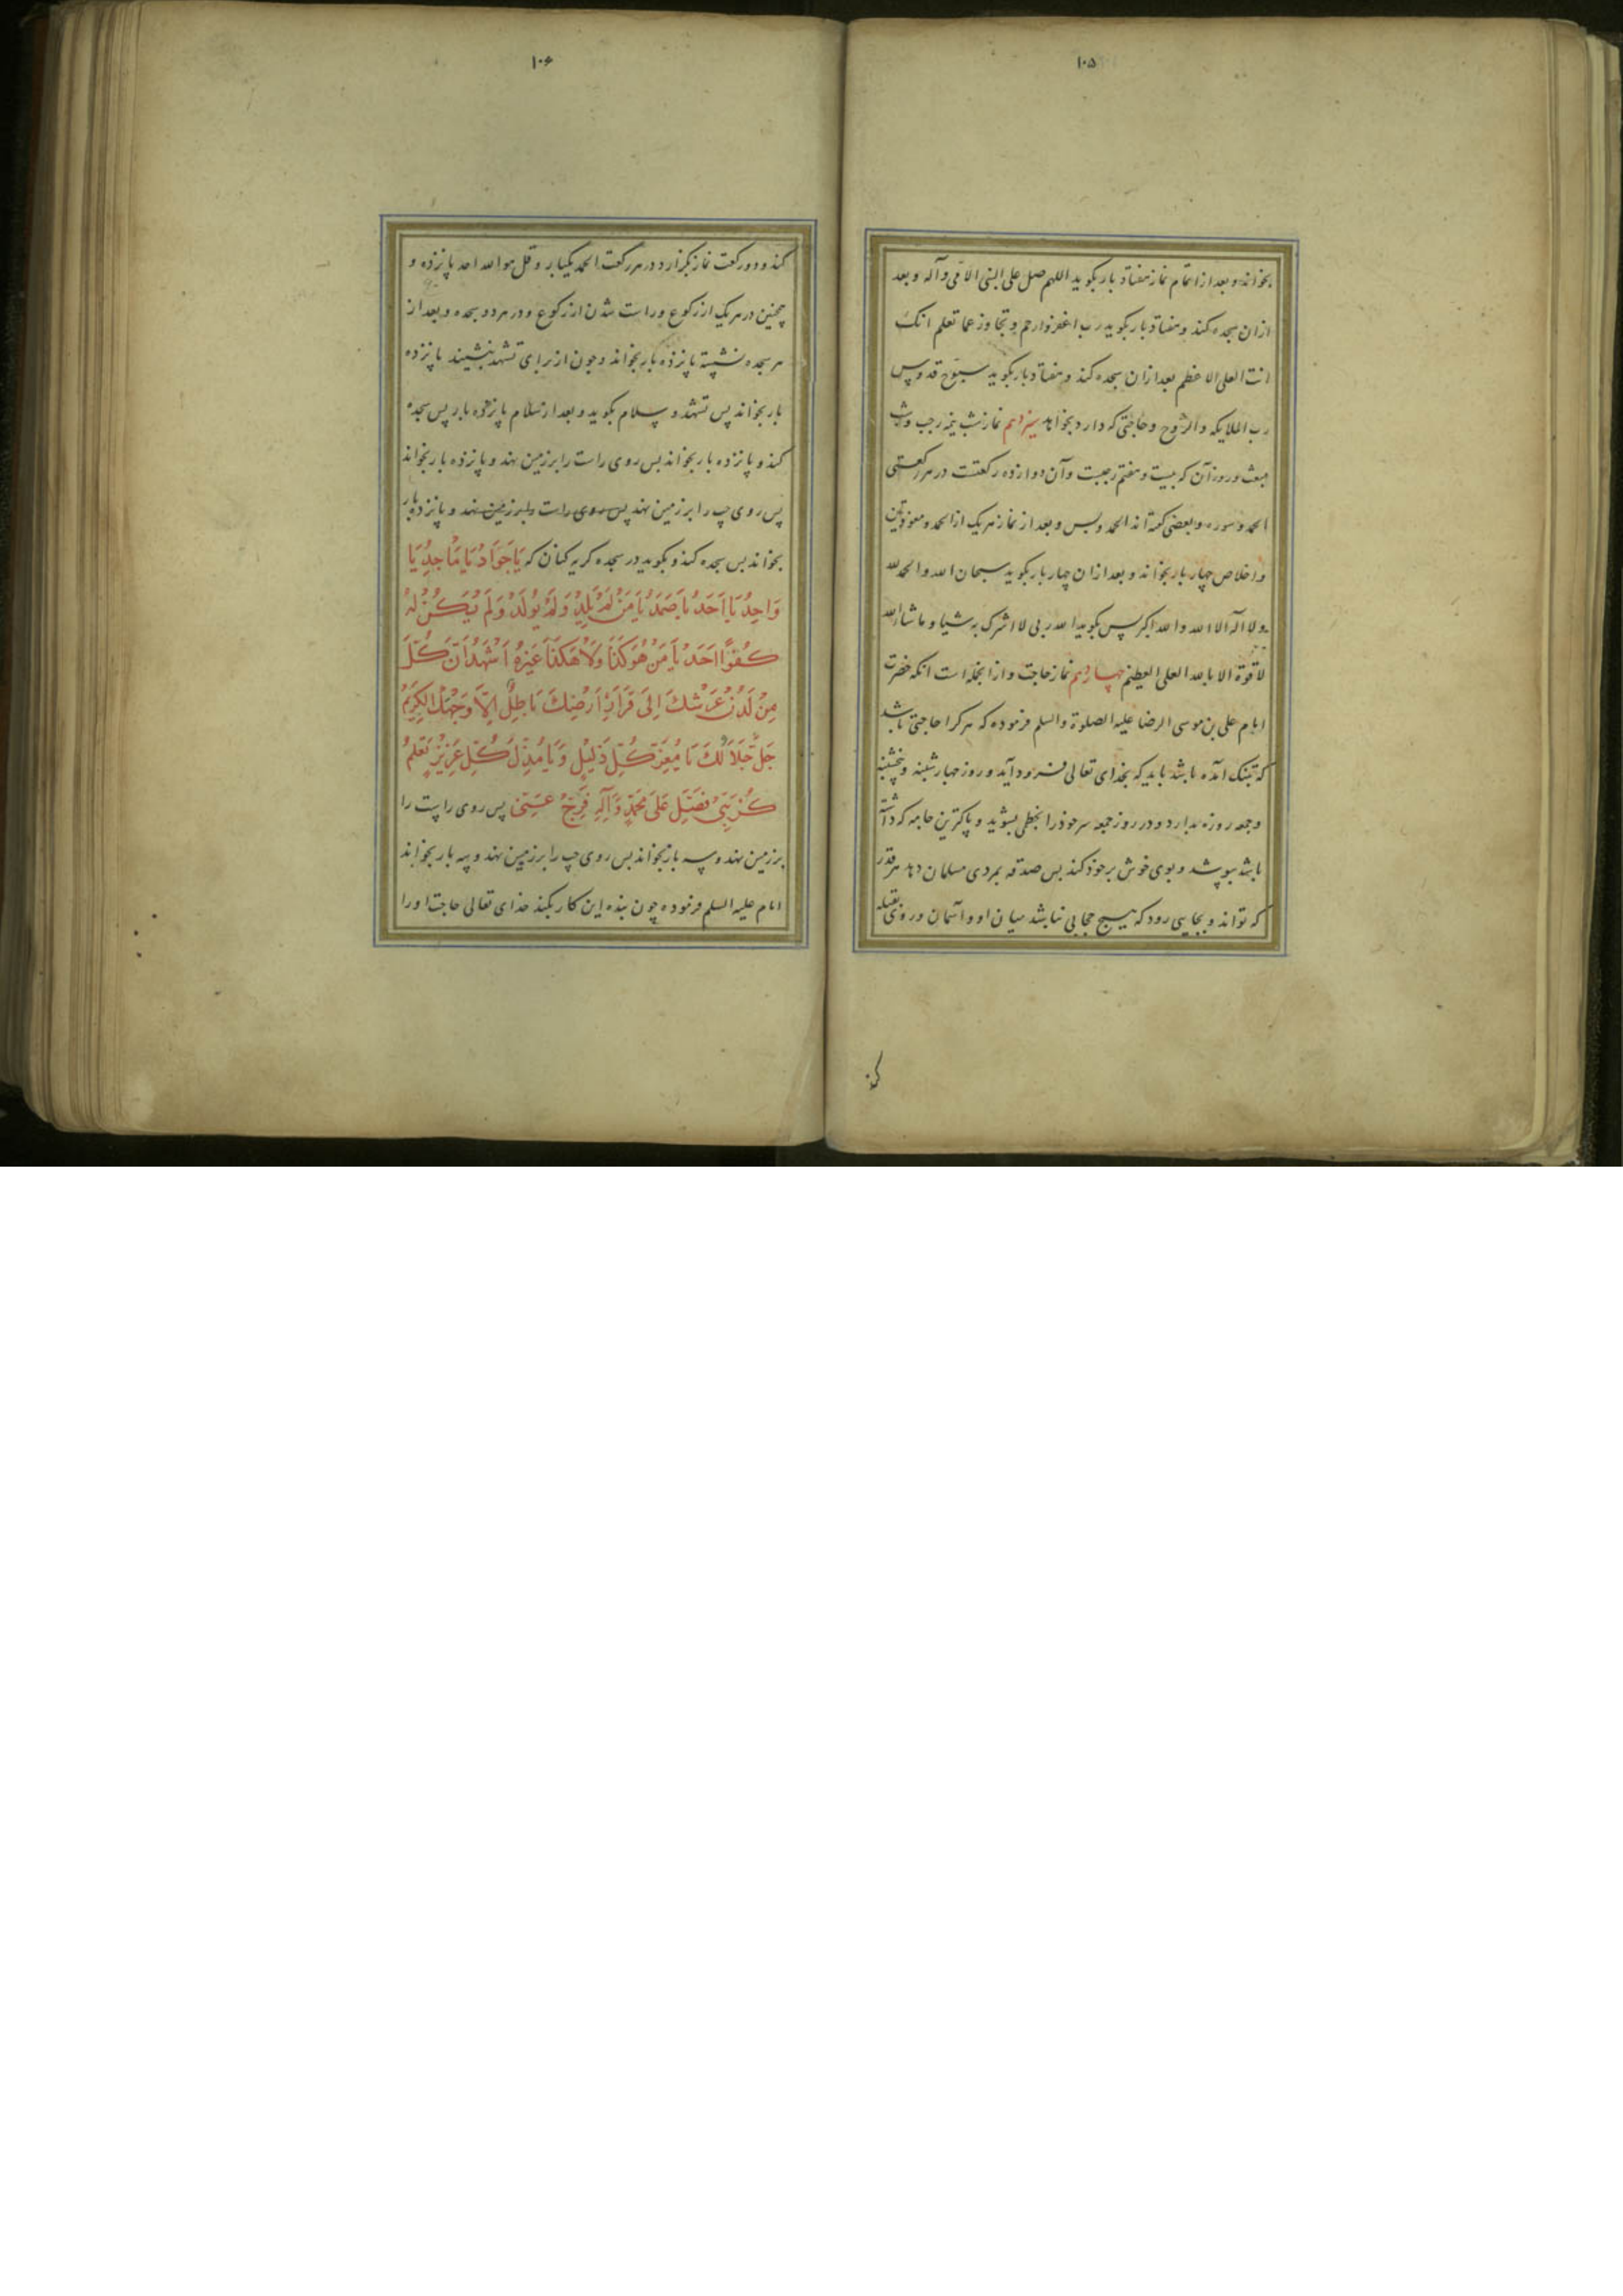 ۱۰۵
بخواند و بعد از اتمام نماز هفتاد بار بگوید اللهم صل علی النبی الامی و آله و بعد
ازان سجده کند و هفتاد بار بگوید رب اغفر وارحم و تجاوز عما تعلم انک
انت العلی الاعظم بعد ازان سجده کند و هفتاد بار بگوید سبوح قدوس
رب الملایکه والروح و حاجتی که دارد بخواهد سیزدهم نماز شب نیمه رجب و شب
مبعث و روز آن که بیست و هفتم رجبست و آن دوازده رکعتست در هر رکعتی
الحمد و سوره و بعضی گفته‌اند الحمد و یس و بعد از نماز هر یک از الحمد و معوذتین
و اخلاص چهار بار بخواند و بعد ازان چهار بار بگوید سبحان الله والحمد لله
ولا اله الا الله والله اکبر پس بگوید الله ربی لا اشرک به شیا و ما شاء الله
لا قوة الا بالله العلی العظیم چهاردهم نماز حاجت و ازانجمله است انکه حضرت
امام علی بن موسی الرضا علیه الصلوة والسلم فرموده که هر کرا حاجتی باشد
که تنگ آمده باشد باید که بخدای تعالی فرود آید و روز چهارشنبه و پنجشنبه
و جمعه روزه بدارد و در روز جمعه سر خود را بخطمی بشوید و پاکترین جامه که داشته
باشد بپوشد و بوی خوش بر خود کند بس صدقه بمردی مسلمان دهد هر قدر
که تواند و بجایی رود که هیچ حجابی نباشد میان او و آسمان و روی بقبله
کند
۱۰۶
کند و دو رکعت نماز بگزارد در هر رکعت الحمد یکبار و قل هو الله احد پانزده و
همچنین در هر یک از رکوع و راست شدن از رکوع و در هر دو سجده و بعد از
هر سجده نشسته پانزده بار بخواند و چون از برای تشهد بنشیند پانزده
بار بخواند پس تشهد و سلام بگوید و بعد از سلام پانزده بار پس سجده
کند و پانزده بار بخواند بس روی راست را بر زمین نهد و پانزده بار بخواند
پس روی چپ را بر زمین نهد پس روی راست را بر زمین نهد و پانزده بار
بخواند بس سجده کند و بگوید در سجده گریه کنان که یَا جَوَادُ یَا مَاجِدُ یَا
وَاحِدُ یَا اَحَدُ یَا صَمَدُ یَا مَنْ لَمْ یَلِدْ وَلَمْ یُولَدْ وَلَمْ یَکُنْ لَهُ
کُفُوًا اَحَدٌ یَا مَنْ هُوَ کَذَا وَلَا هَکَذَا غَیْرُهُ اَشْهَدُ اَنَّ کُلَّ
مِنْ لَدُنْ عَرْشِكَ اِلَی قَرَارِ اَرْضِكَ بَاطِلٌ اِلَّا وَجْهَكَ الْکَرِیمَ
جَلَّ جَلَالُكَ یَا مُعِزَّ کُلِّ ذَلِیلٍ وَیَا مُذِلَّ کُلِّ عَزِیزٍ تَعْلَمُ
کُرْبَتِی فَصَلِّ عَلَی مُحَمَّدٍ وَآلِهِ فَرِّجْ عَنِّی پس روی راست را
بر زمین نهد و سه بار بخواند بس روی چپ را بر زمین نهد و سه بار بخواند
امام علیه السلم فرموده چون بنده این کار بکند خدای تعالی حاجت او را